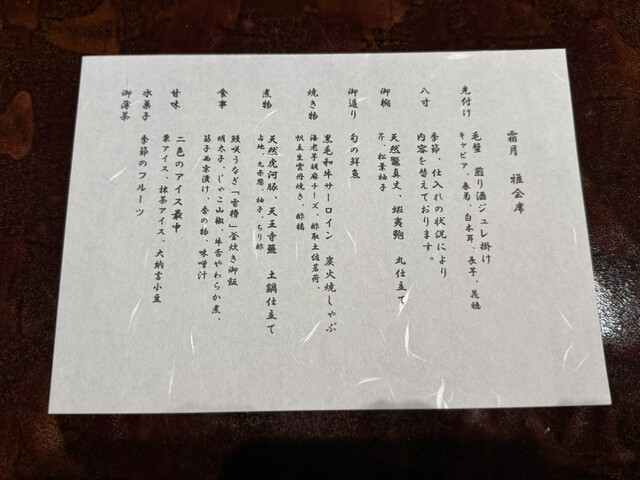 霜月　雅会席
先付け
毛蟹　煎り酒ジュレ掛け
キャビア、春菊、白木耳、長芋、花穂
八寸
季節、仕入れの状況により
内容を替えております。
御椀
天然鼈真丈、蝦夷鮑　丸仕立て
芹、松葉柚子
御造り
旬の鮮魚
焼き物
黒毛和牛サーロイン　炭火焼しゃぶ
海老芋胡麻チーズ、酢取土佐茗荷、
帆立生雲丹焼き、酢橘
煮物
天然虎河豚、天王寺蕪　土鍋仕立て
占地、九条葱、柚子、ちり酢
食事
鰻咲うなぎ「雪椿」釜炊き御飯
明太子、じゃこ山椒、牛舌やわらか煮、
筋子西京漬け、香の物、味噌汁
甘味
二色のアイス最中
栗アイス、抹茶アイス、大納言小豆
水菓子
季節のフルーツ
御薄茶